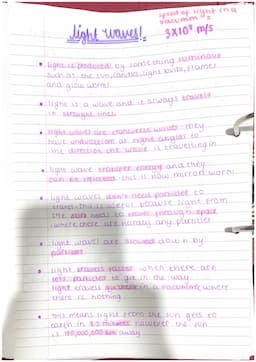 light waves!
speed of light in a vacuum =
3x10⁸ m/s
• light is produced by something luminous
such as, the sun, candle, light bulbs, flames
and glow worms.
• light is a wave and it always travels
in straight lines
• light waves are transverse waves - they
have undulations at right angles to
the direction the wave is travelling in
• light waves transfer energy and they
can be reflected. this is how mirrors work!
• light waves don't need particles to
travel. this is useful because light from
the sun need to travel through space
where there are hardly any particles
• light waves are slowed down by
particles
• light travels faster when there are
less particles to get in the way.
light travels quickest in a vacuum where
there is nothing
• this means light from the sun gets to
earth in 8.3 minutes however the sun
is 150,000,000 km away